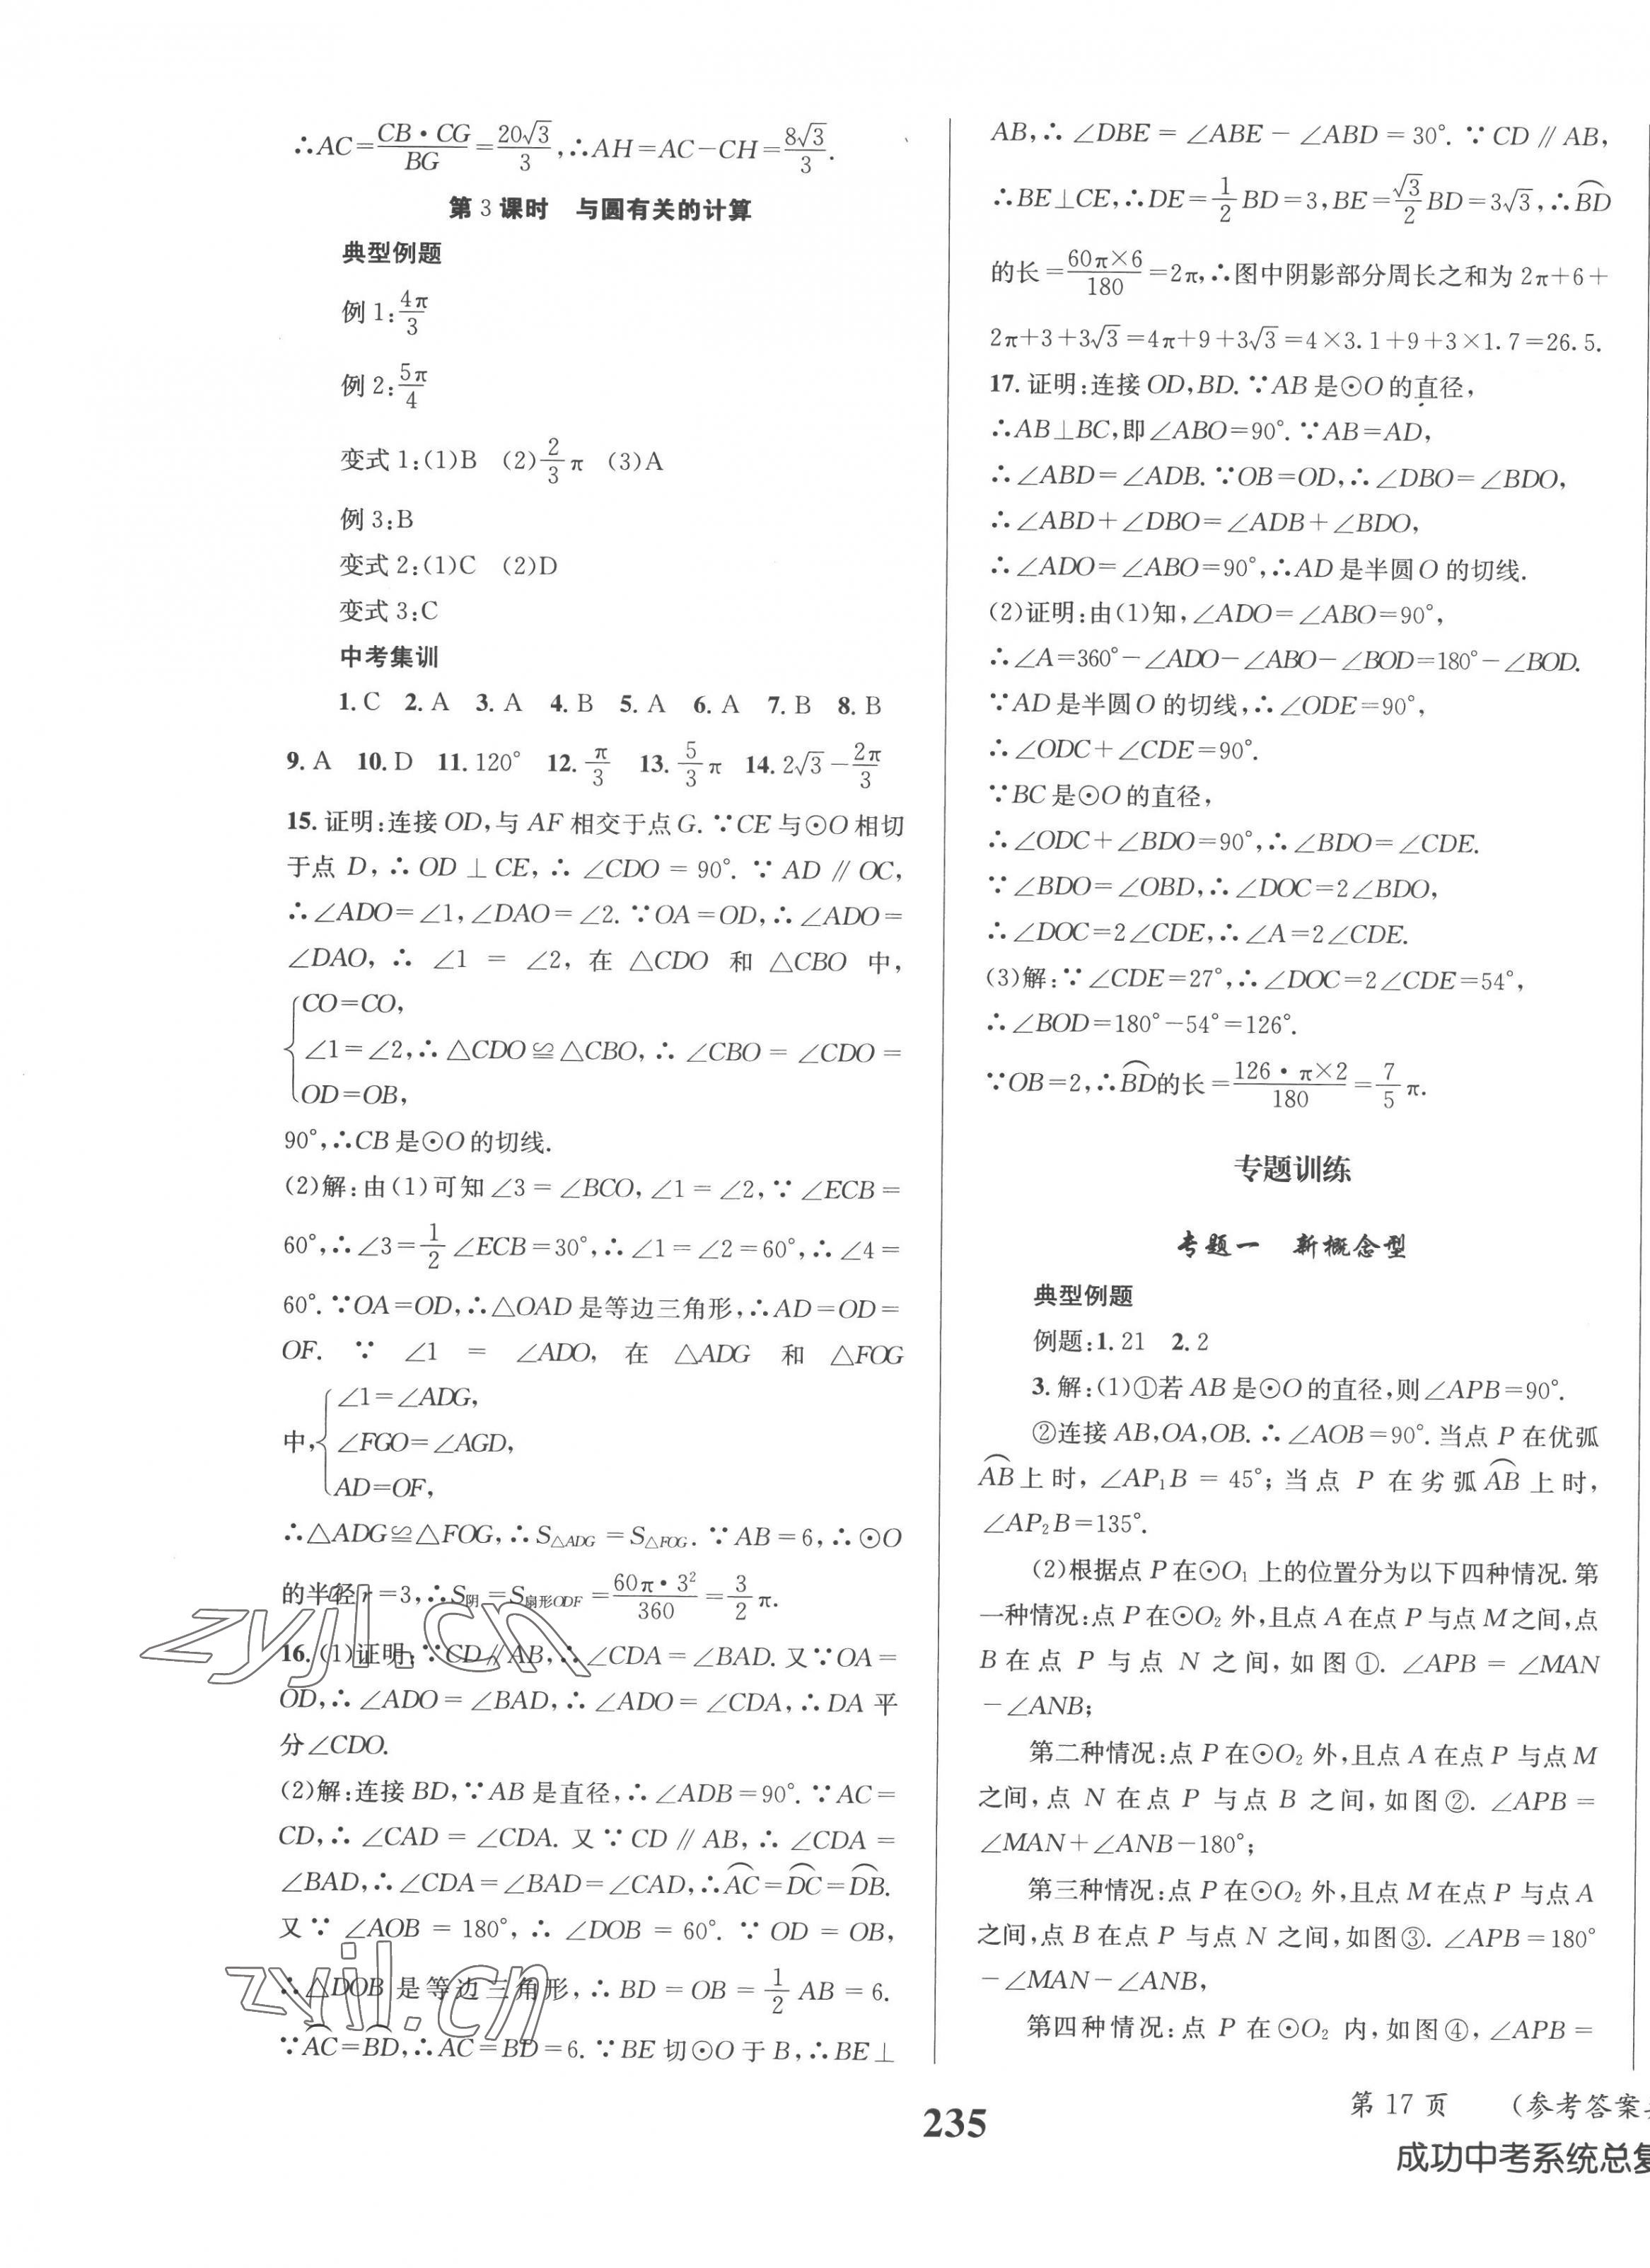 ∴AC=CB·CG/BG=20√3/3,∴AH=AC-CH=8√3/3.
第 3 课时　与圆有关的计算
典型例题
例 1:4π/3
例 2:5π/4
变式 1:(1)B　(2)2/3π　(3)A
例 3:B
变式 2:(1)C　(2)D
变式 3:C
中考集训
1. C　2. A　3. A　4. B　5. A　6. A　7. B　8. B
9. A　10. D　11. 120°　12. π/3　13. 5/3π　14. 2√3-2π/3
15. 证明:连接 OD,与 AF 相交于点 G. ∵CE 与⊙O 相切
于点 D,∴OD⊥CE,∴∠CDO=90°. ∵AD∥OC,
∴∠ADO=∠1,∠DAO=∠2. ∵OA=OD,∴∠ADO=
∠DAO,∴∠1=∠2,在△CDO 和△CBO 中,
CO=CO,
∠1=∠2,∴△CDO≌△CBO,∴∠CBO=∠CDO=
OD=OB,
90°,∴CB 是⊙O 的切线.
(2)解:由(1)可知∠3=∠BCO,∠1=∠2,∵∠ECB=
60°,∴∠3=1/2∠ECB=30°,∴∠1=∠2=60°,∴∠4=
60°. ∵OA=OD,∴△OAD 是等边三角形,∴AD=OD=
OF. ∵∠1=∠ADO,在△ADG 和△FOG
∠1=∠ADG,
中,{∠FGO=∠AGD,
AD=OF,
∴△ADG≌△FOG,∴S△ADG=S△FOG. ∵AB=6,∴⊙O
的半径 r=3,∴S阴=S扇形ODF=60π·3²/360=3/2π.
16. (1)证明:∵CD∥AB,∴∠CDA=∠BAD. 又∵OA=
OD,∴∠ADO=∠BAD,∴∠ADO=∠CDA,∴DA 平
分∠CDO.
(2)解:连接 BD,∵AB 是直径,∴∠ADB=90°. ∵AC=
CD,∴∠CAD=∠CDA. 又∵CD∥AB,∴∠CDA=
∠BAD,∴∠CDA=∠BAD=∠CAD,∴A͡C=D͡C=D͡B.
又∵∠AOB=180°,∴∠DOB=60°. ∵OD=OB,
∴△DOB 是等边三角形,∴BD=OB=1/2AB=6.
∵A͡C=B͡D,∴AC=BD=6. ∵BE 切⊙O 于 B,∴BE⊥
AB,∴∠DBE=∠ABE-∠ABD=30°. ∵CD∥AB,
∴BE⊥CE,∴DE=1/2BD=3,BE=√3/2BD=3√3,∴B͡D
的长=60π×6/180=2π,∴图中阴影部分周长之和为 2π+6+
2π+3+3√3=4π+9+3√3=4×3.1+9+3×1.7=26.5.
17. 证明:连接 OD,BD. ∵AB 是⊙O 的直径,
∴AB⊥BC,即∠ABO=90°. ∵AB=AD,
∴∠ABD=∠ADB. ∵OB=OD,∴∠DBO=∠BDO,
∴∠ABD+∠DBO=∠ADB+∠BDO,
∴∠ADO=∠ABO=90°,∴AD 是半圆 O 的切线.
(2)证明:由(1)知,∠ADO=∠ABO=90°,
∴∠A=360°-∠ADO-∠ABO-∠BOD=180°-∠BOD.
∵AD 是半圆 O 的切线,∴∠ODE=90°,
∴∠ODC+∠CDE=90°.
∵BC 是⊙O 的直径,
∴∠ODC+∠BDO=90°,∴∠BDO=∠CDE.
∵∠BDO=∠OBD,∴∠DOC=2∠BDO,
∴∠DOC=2∠CDE,∴∠A=2∠CDE.
(3)解:∵∠CDE=27°,∴∠DOC=2∠CDE=54°,
∴∠BOD=180°-54°=126°.
∵OB=2,∴B͡D的长=126·π×2/180=7/5π.
专题训练
专题一　新概念型
典型例题
例题:1. 21　2. 2
3. 解:(1)①若 AB 是⊙O 的直径,则∠APB=90°.
②连接 AB,OA,OB. ∴∠AOB=90°. 当点 P 在优弧
A͡B上时,∠AP₁B=45°;当点 P 在劣弧A͡B上时,
∠AP₂B=135°.
(2)根据点 P 在⊙O₁ 上的位置分为以下四种情况. 第
一种情况:点 P 在⊙O₂ 外,且点 A 在点 P 与点 M 之间,点
B 在点 P 与点 N 之间,如图①. ∠APB=∠MAN
-∠ANB;
第二种情况:点 P 在⊙O₂ 外,且点 A 在点 P 与点 M
之间,点 N 在点 P 与点 B 之间,如图②. ∠APB=
∠MAN+∠ANB-180°;
第三种情况:点 P 在⊙O₂ 外,且点 M 在点 P 与点 A
之间,点 B 在点 P 与点 N 之间,如图③. ∠APB=180°
-∠MAN-∠ANB,
第四种情况:点 P 在⊙O₂ 内,如图④,∠APB=
zyjl.cn
zyjl.cn
235
第 17 页　(参考答案
成功中考系统总复